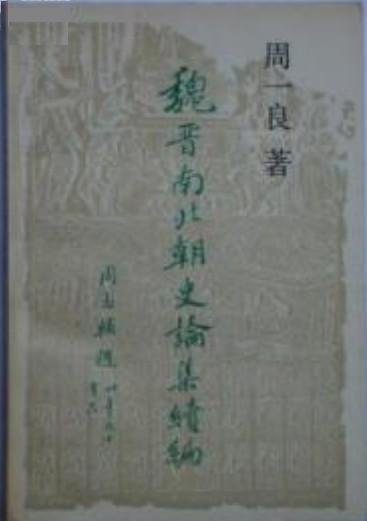 周一良著
魏晋南北朝史論集續編
周